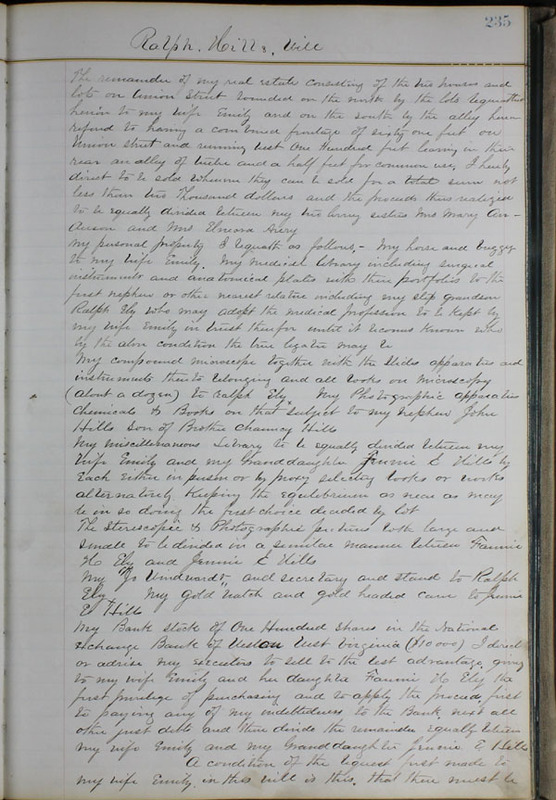 235
Ralph. Hills, Will
The remainder of my real estate consisting of the two houses and
lots on Union Street bounded on the north by the lots bequeathed
herein to my wife Emily and on the south by the alley herein
refered to having a combined frontage of sixty one feet on
Union street and running West One Hundred feet leaving in their
rear an alley of twelve and a half feet for common use, I hereby
direct to be sold whenever they can be sold for a total sum not
less than two Thousand dollars and the proceeds thus realized
to be equally divided between my two living sisters Mrs Mary An-
derson and Mrs Avery
My personal property I bequeath as follows,- My horse and buggy
to my wife Emily. My medical library including surgical
instruments and anatomical plates with their portfolios to the
first nephew or other nearest relative including my step grandson
Ralph Ely who may adopt the medical profession to be kept by
my wife Emily in trust therefor until it becomes known who
by the above condition the true legatee may be
My compound microscope together with the slides apparatus and
instruments thereto belonging and all books on microscopy
(about a dozen) to Ralph Ely. My Photographic apparatus
chemicals & Books on that subject to my nephew John
Hills son of Brother Chauncy Hills
My miscellaneous Library to be equally divided between my
wife Emily and my Granddaughter Jennie E Hills by
Each either in person or by proxy selecting books or works
alternatively keeping the equilibrium as near as may
be in so doing the first choice decided by lot
The Sterescopic & Photographic pictures both large and
small to be divided in a similar manner between Fannie
H Ely and Jennie E Hills
My and secretary and stand to Ralph
Ely. My gold watch and gold headed cane to Jennie
E Hills
My Bank stock of One Hundred shares in the National
Exchange Bank of Weston West Virginia ($10000) I direct
or advise my executors to sell to the best advantage, giving
to my wife Emily and her daughter Fannie H Ely the
first privilege of purchasing and to apply the proceeds first
to paying any of my indebtedness to the Bank, next all
other just debts and then divide the remainder equally between
my wife Emily and my Granddaughter Jennie E Hills
A condition of the bequest first made to
my wife Emily, in this will is this, that there must be